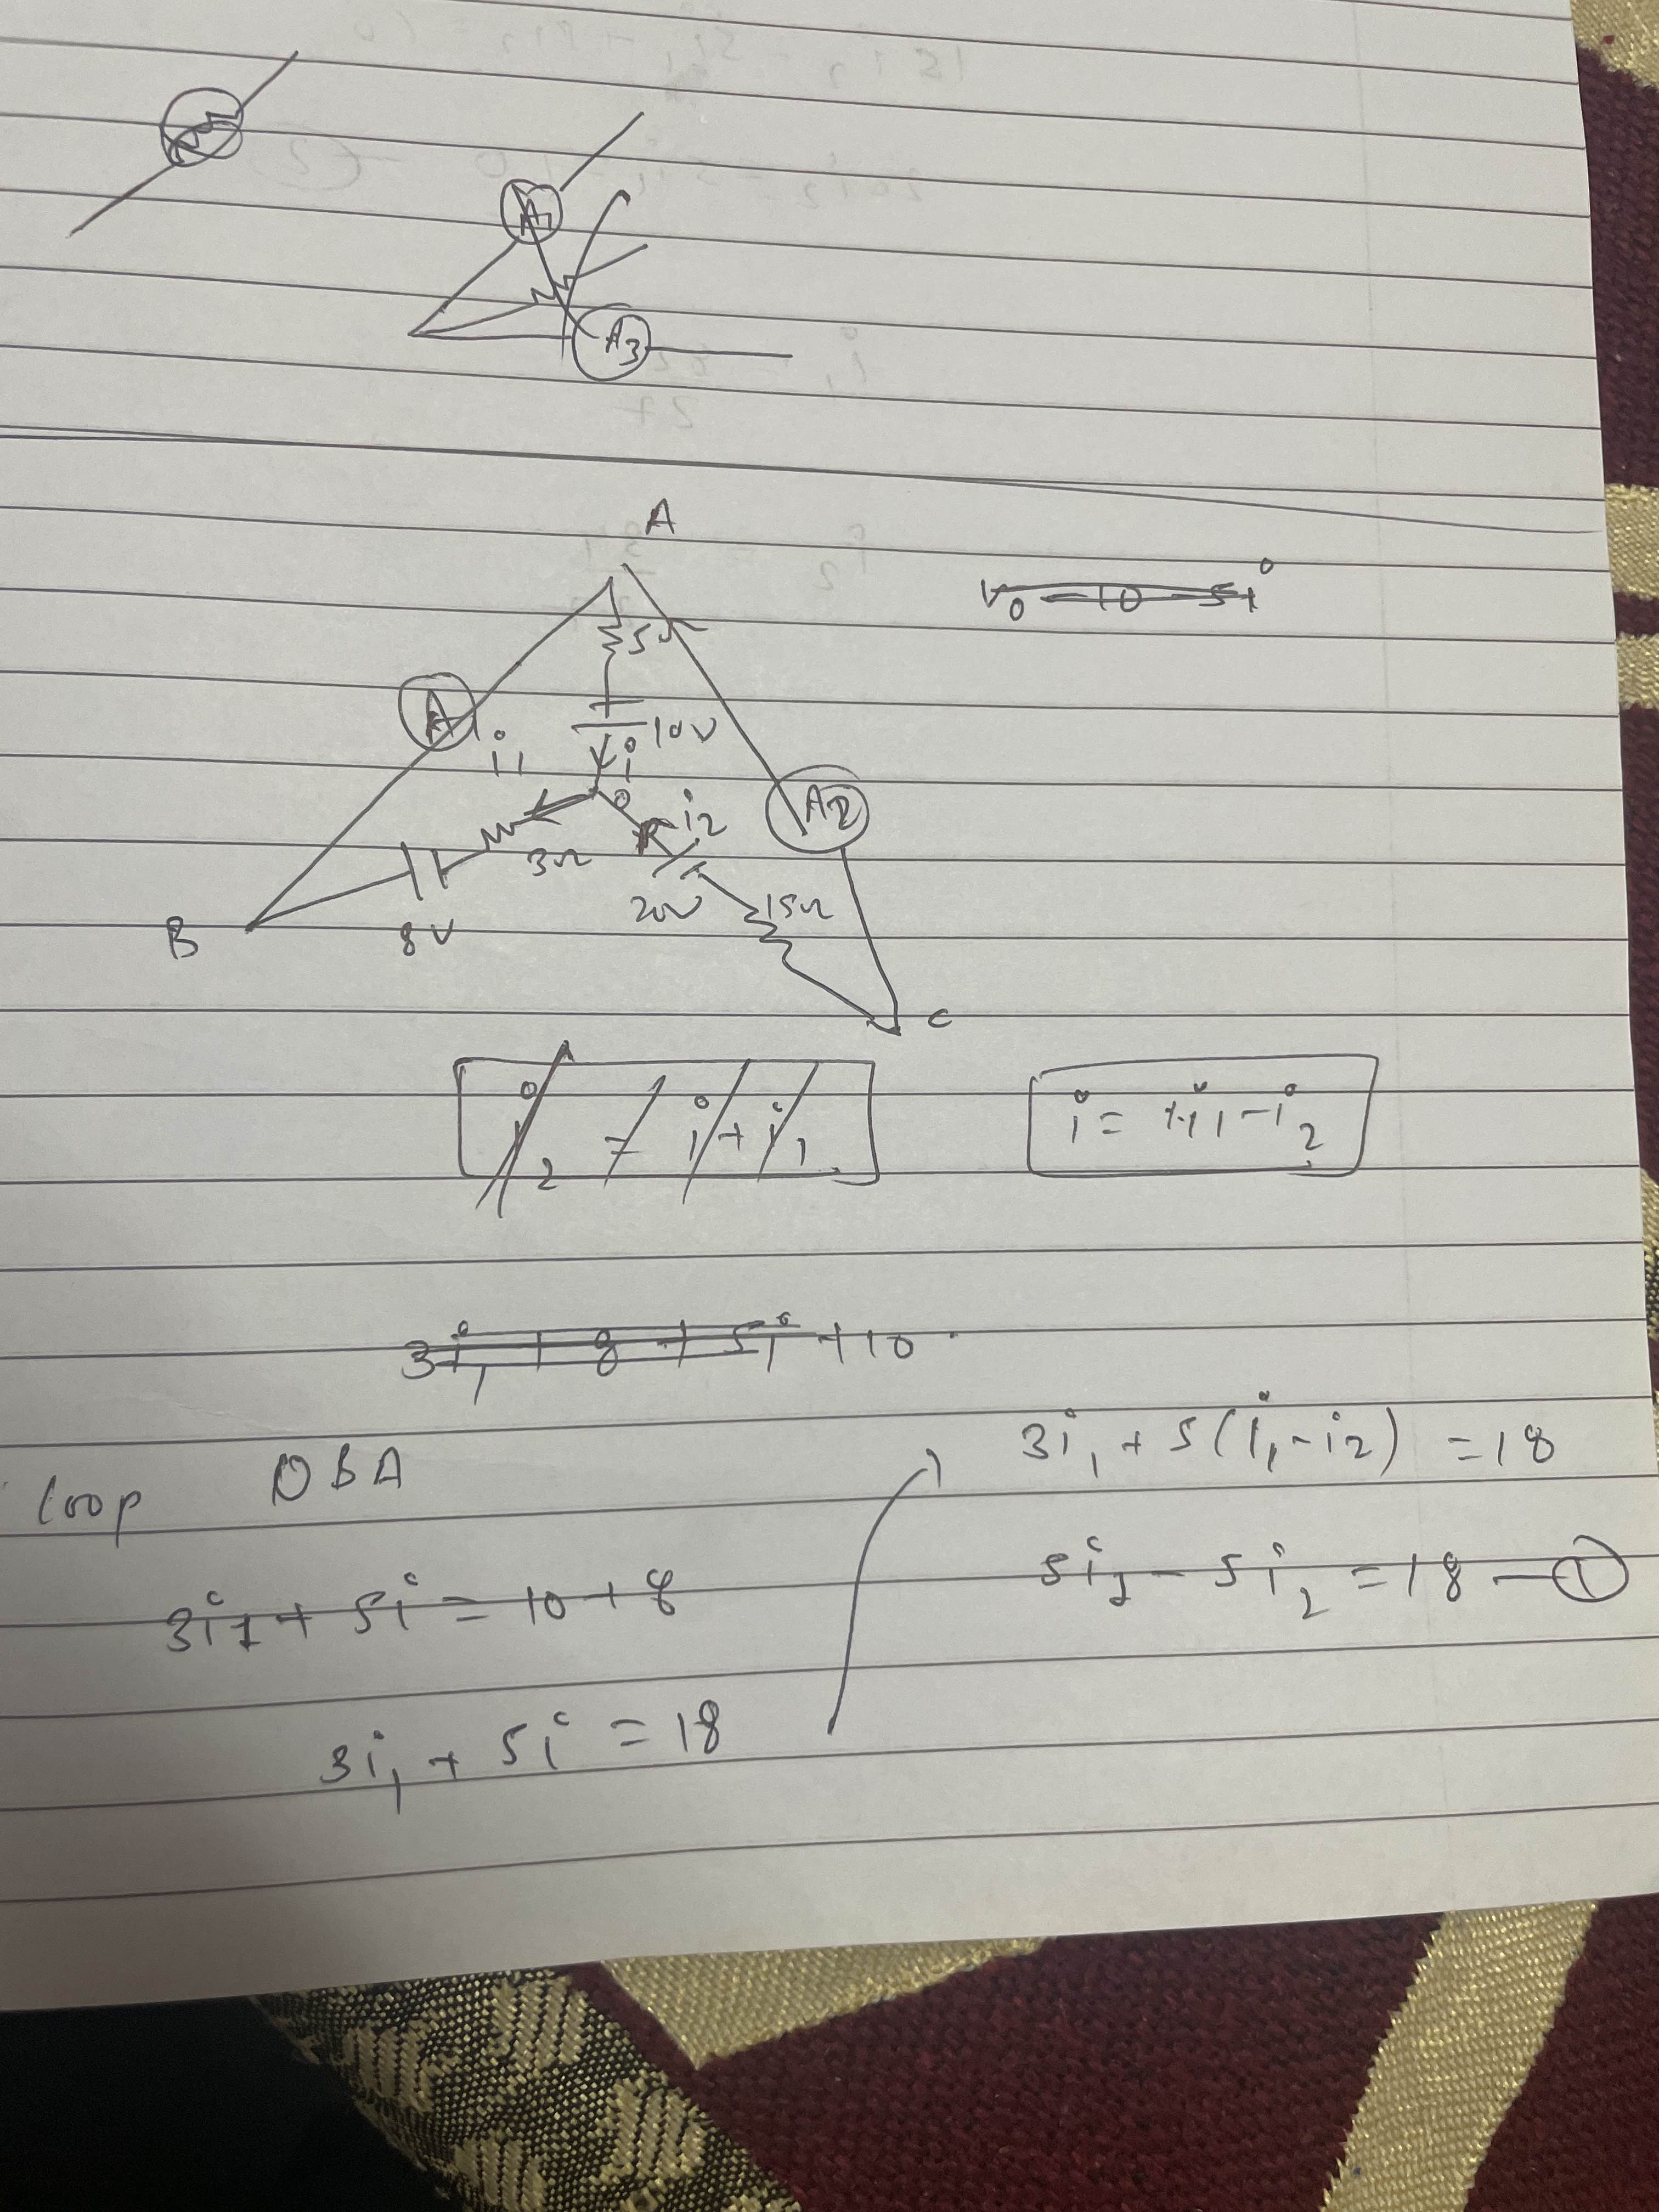 A1
A3
A
V0 = 10 - 5i
5Ω
A1
i1
i
10V
O
i2
A2
3Ω
20V
15Ω
B
8V
C
i2 = i + i1
i = i1 - i2
3i1 + 8 + 5i + 10
loop OBA
3i1 + 5i = 10 + 8
3i1 + 5i = 18
3i1 + 5(i1 - i2) = 18
5i1 - 5i2 = 18 — ①